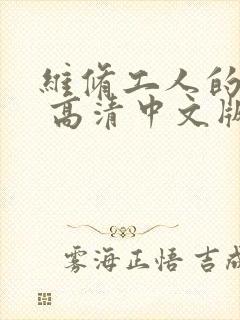 維脩工人的
高清中文版
雾海正悟 吉成